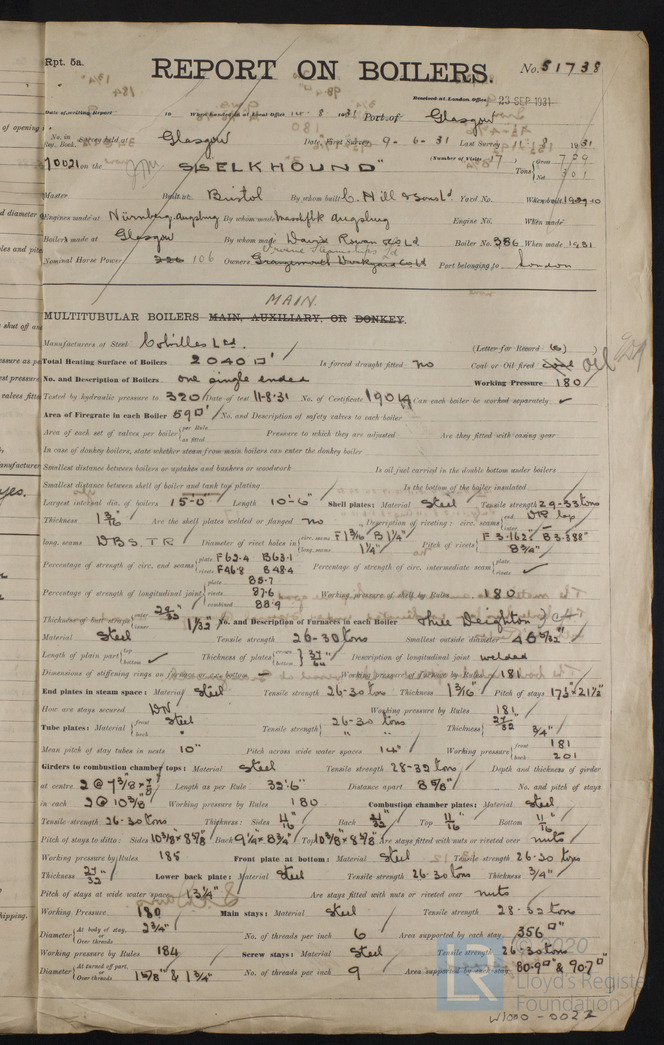 Rpt. 5a.
REPORT ON BOILERS.
No. 51738
Received at London Office 23 SEP 1931
Date of writing Report 19 When handed in at Local Office 8. 1931 Port of Glasgow
No. in Reg. Book. Survey held at Glasgow Date, First Survey 9-6-31 Last Survey 1931
10021 on the SS "ELKHOUND" (Number of Visits 17) Tons Gross 729 Net 301
Master Built at Bristol By whom built C. Hill & Sons Ld Yard No. When built
Engines made at Nürnberg, Augsburg By whom made Maschfbk Augsburg Engine No. When made
Boilers made at Glasgow By whom made David Rowan & Co Ld Boiler No. 386 When made 1931
Nominal Horse Power 106 Owners Grangemouth Dockyard Co Ld Port belonging to London
MAIN
MULTITUBULAR BOILERS MAIN, AUXILIARY, OR DONKEY.
Manufacturers of Steel Colvilles Ltd. (Letter for Record (S))
Total Heating Surface of Boilers 2040 □' Is forced draught fitted no Coal or Oil fired coal oil
No. and Description of Boilers one single ended Working Pressure 180
Tested by hydraulic pressure to 320 Date of test 11.8.31 No. of Certificate 19014 Can each boiler be worked separately ✓
Area of Firegrate in each Boiler 59 □' No. and Description of safety valves to each boiler
Area of each set of valves per boiler per Rule as fitted Pressure to which they are adjusted Are they fitted with easing gear
In case of donkey boilers, state whether steam from main boilers can enter the donkey boiler
Smallest distance between boilers or uptakes and bunkers or woodwork Is oil fuel carried in the double bottom under boilers
Smallest distance between shell of boiler and tank top plating Is the bottom of the boiler insulated
Largest internal dia. of boilers 15'-0" Length 10'-6" Shell plates: Material Steel Tensile strength 29-33 tons
Thickness 1 3/16 Are the shell plates welded or flanged no Description of riveting: circ. seams end DR lap inter. –
long. seams DBS, TR Diameter of rivet holes in circ. seams F 1 3/16 B 1 1/4" long. seams 1 1/4" Pitch of rivets F 3.162" B 3.388" 8 3/4"
Percentage of strength of circ. end seams plate F 62.4 B 63.1 rivets F 46.8 B 48.4 Percentage of strength of circ. intermediate seam plate rivets ✓
Percentage of strength of longitudinal joint plate 85.7 rivets 87.6 combined 88.9 Working pressure of shell by Rules 180
Thickness of butt straps outer 29/32 inner 1 1/32 No. and Description of Furnaces in each Boiler Three Deighton
Material Steel Tensile strength 26-30 tons Smallest outside diameter 46 5/32"
Length of plain part top bottom ✓ Thickness of plates crown bottom 37"/64 Description of longitudinal joint welded
Dimensions of stiffening rings on furnace or c.c. bottom – Working pressure of furnace by Rules 181
End plates in steam space: Material Steel Tensile strength 26-30 tons Thickness 1 3/16 Pitch of stays 17 1/2 × 21 1/2"
How are stays secured DN Working pressure by Rules 181
Tube plates: Material front Steel back " Tensile strength 26-30 tons " " Thickness 27/32 3/4"
Mean pitch of stay tubes in nests 10" Pitch across wide water spaces 14" Working pressure front 181 back 201
Girders to combustion chamber tops: Material Steel Tensile strength 28-32 tons Depth and thickness of girder
at centre 2 @ 7 3/8 × 7/8 Length as per Rule 32.6" Distance apart 8 5/8" No. and pitch of stays
in each 2 @ 10 3/8" Working pressure by Rules 180 Combustion chamber plates: Material Steel
Tensile strength 26-30 tons Thickness: Sides 11/16 Back 21/32 Top 11/16 Bottom 11/16
Pitch of stays to ditto: Sides 10 3/8" × 8 5/8" Back 9 1/4 × 8 3/4" Top 10 3/8" × 8 5/8" Are stays fitted with nuts or riveted over nuts
Working pressure by Rules 185 Front plate at bottom: Material Steel Tensile strength 26-30 tons
Thickness 27/32" Lower back plate: Material Steel Tensile strength 26-30 tons Thickness 3/4"
Pitch of stays at wide water space 13 1/4" Are stays fitted with nuts or riveted over nuts
Working Pressure 180 Main stays: Material Steel Tensile strength 28-32 tons
Diameter At body of stay, or Over threads 2 3/4" No. of threads per inch 6 Area supported by each stay 356 □"
Working pressure by Rules 184 Screw stays: Material Steel Tensile strength 26-30 tons
Diameter At turned off part, or Over threads 1 5/8" & 1 3/4" No. of threads per inch 9 Area supported by each stay 80.9 □" & 90.7 □"
© 2020
LR
Lloyd's Register
Foundation
W1000-0022